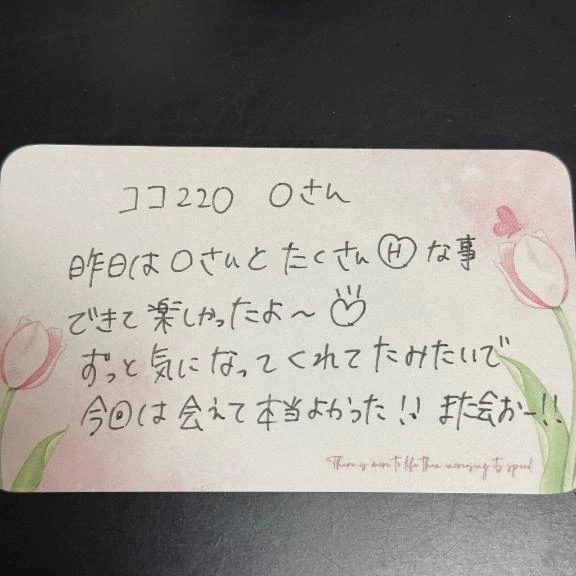 ココ220 〇さん
昨日は〇さんとたくさんⒽな事
できて楽しかったよ〜♡
ずっと気になってくれてたみたいで
今回は会えて本当よかった!! また会おー!!
There is more to life than increasing its speed